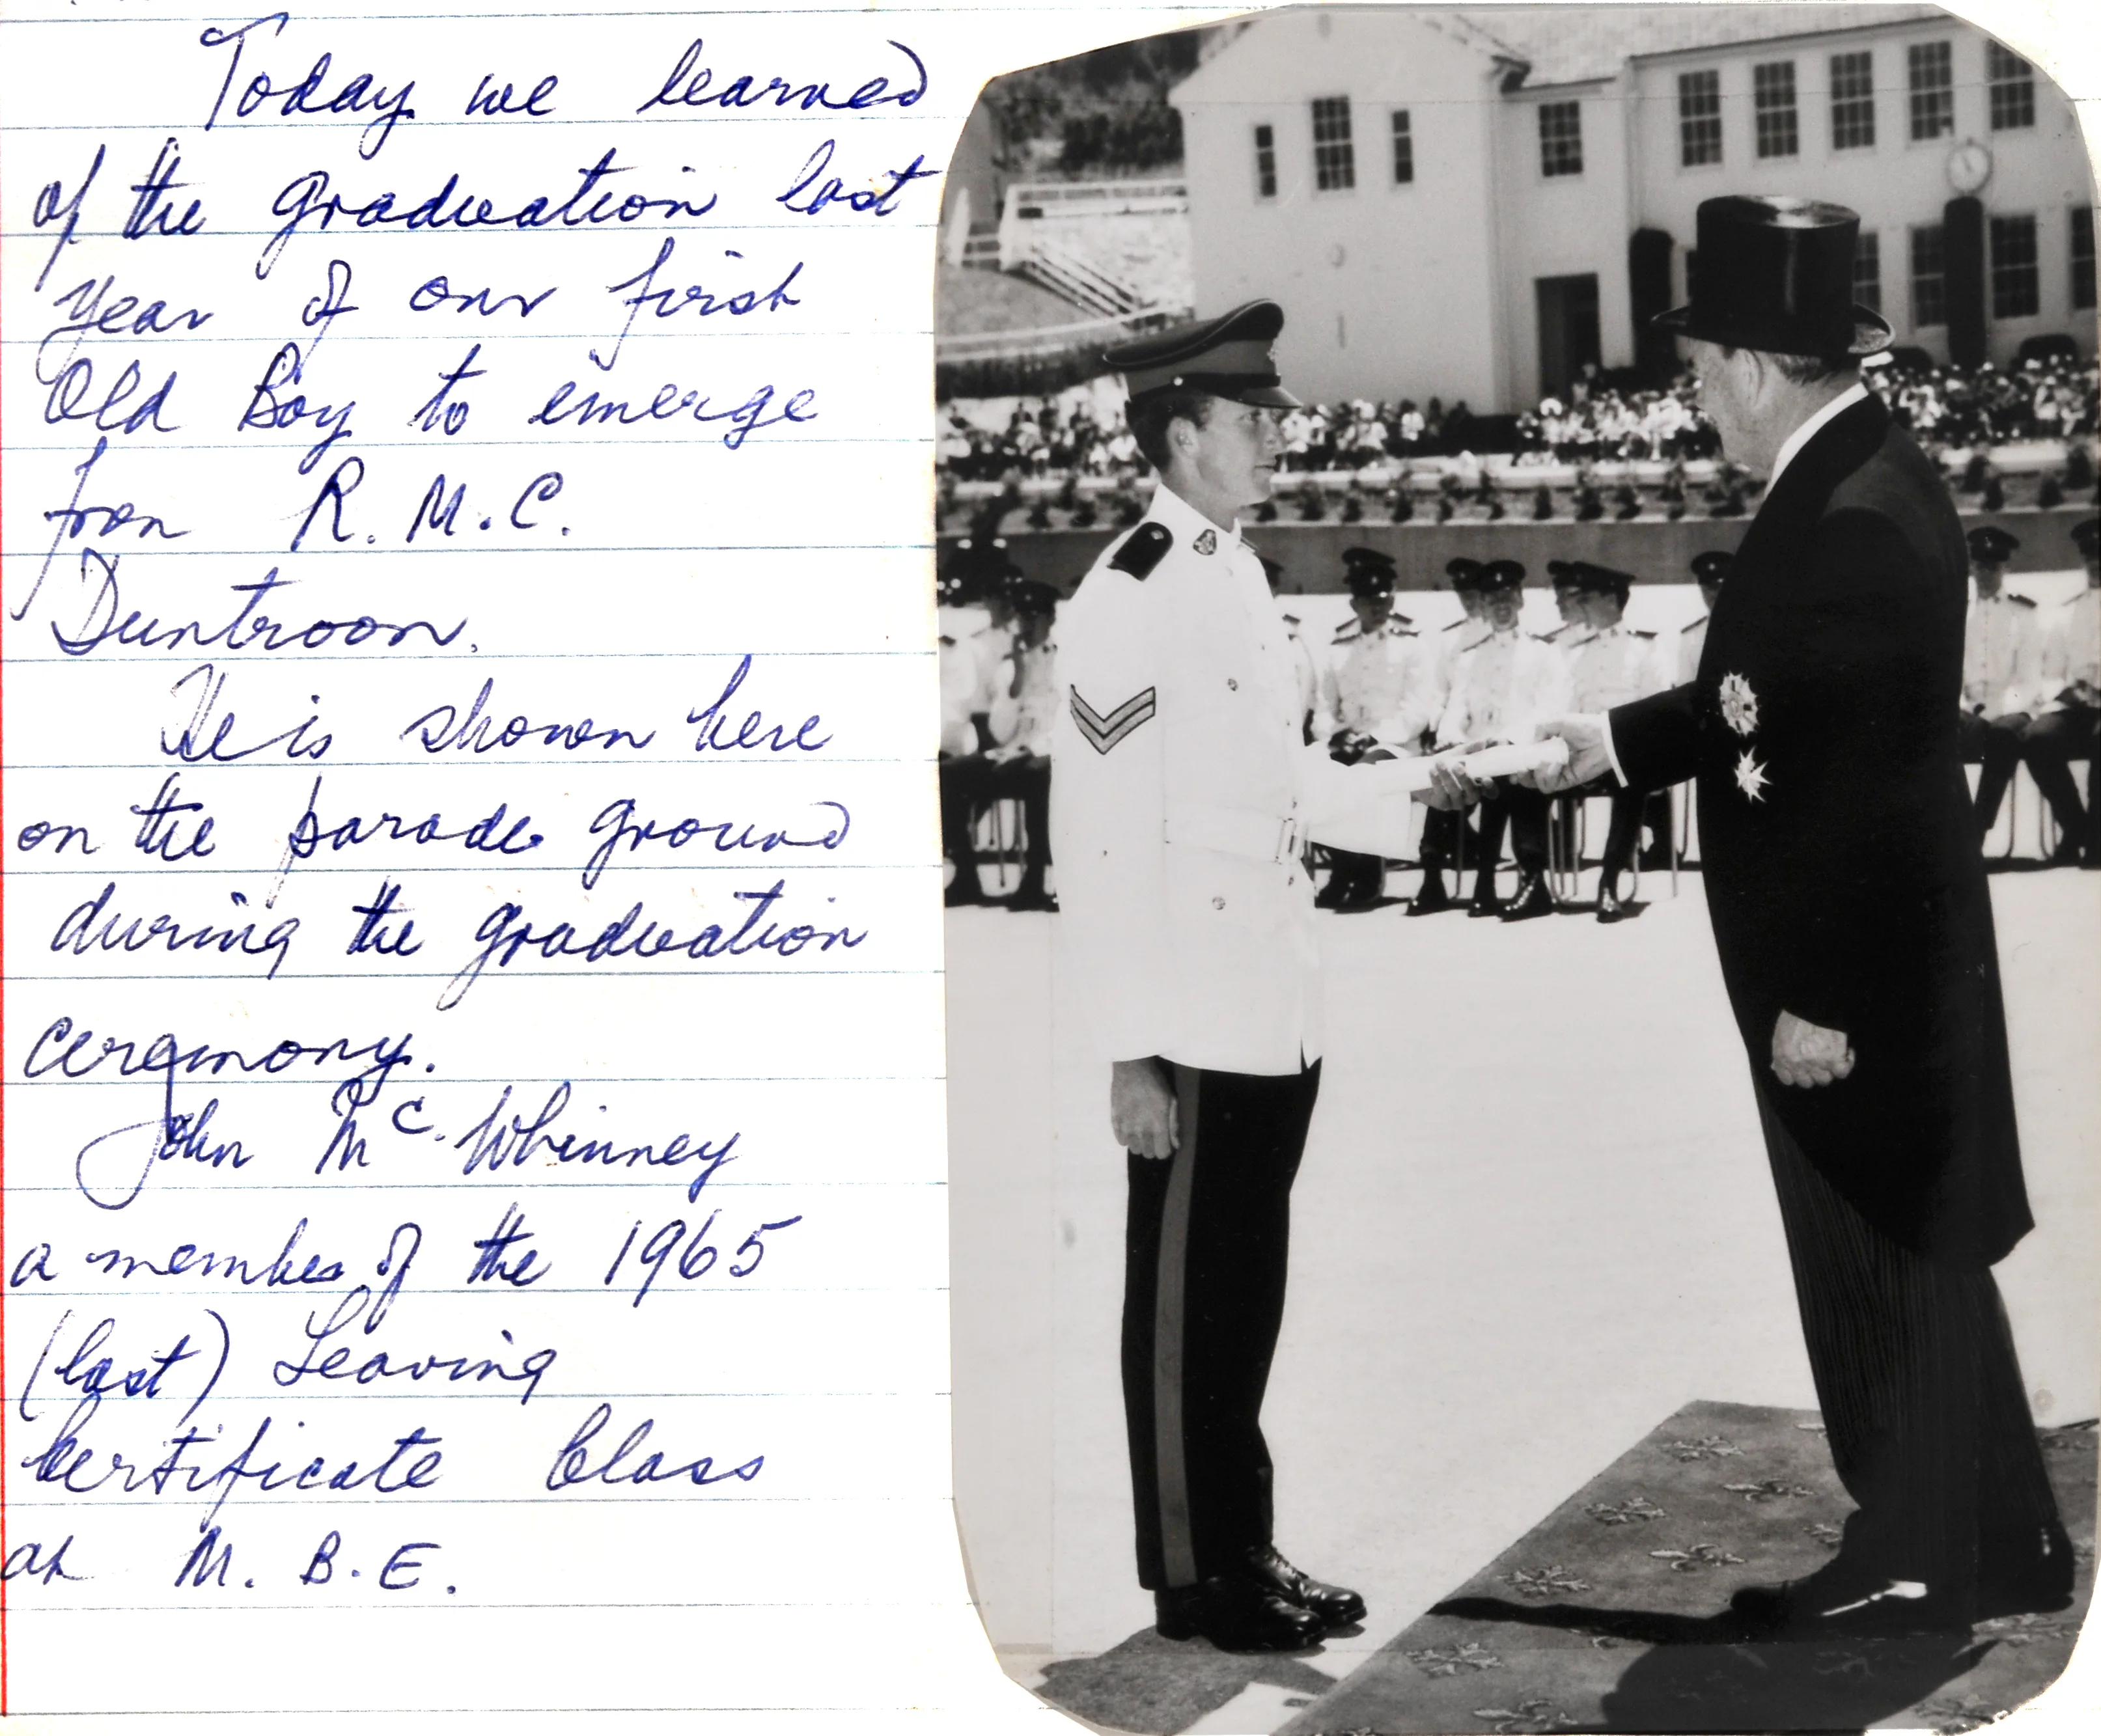 Today we learned
of the graduation last
year of our first
Old Boy to emerge
from R.M.C.
Duntroon.
He is shown here
on the parade ground
during the graduation
ceremony.
John Mc. Whinney
a member of the 1965
(last) Leaving
Certificate Class
at M.B.E.